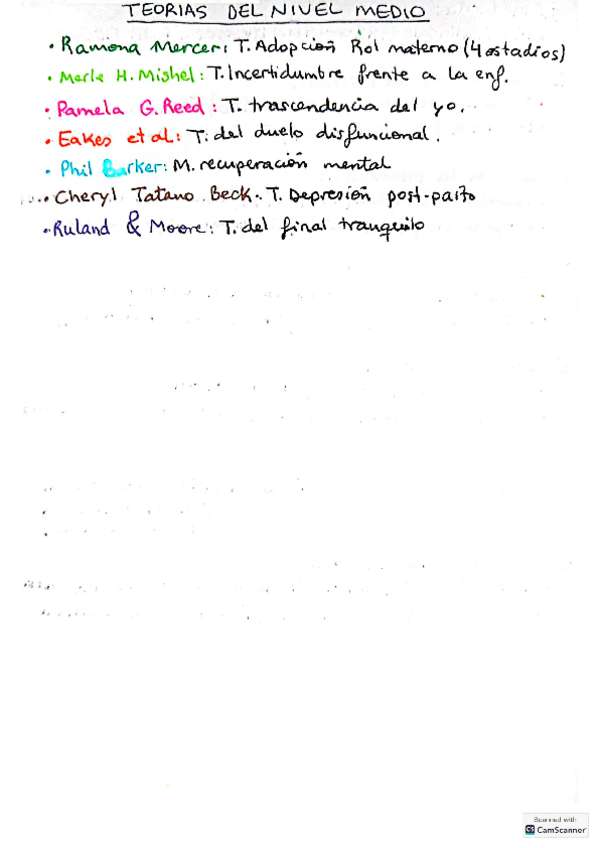 TEORIAS DEL NIVEL MEDIO
• Ramona Mercer: T. Adopción Rol materno (4 estadios)
• Merle H. Mishel: T. Incertidumbre frente a la enf.
• Pamela G. Reed: T. trascendencia del yo.
• Eakes et al: T. del duelo disfuncional.
• Phil Barker: M. recuperación mental
• Cheryl Tatano Beck. T. Depresión post-parto
• Ruland & Moore: T. del final tranquilo
Scanned with
CS CamScanner